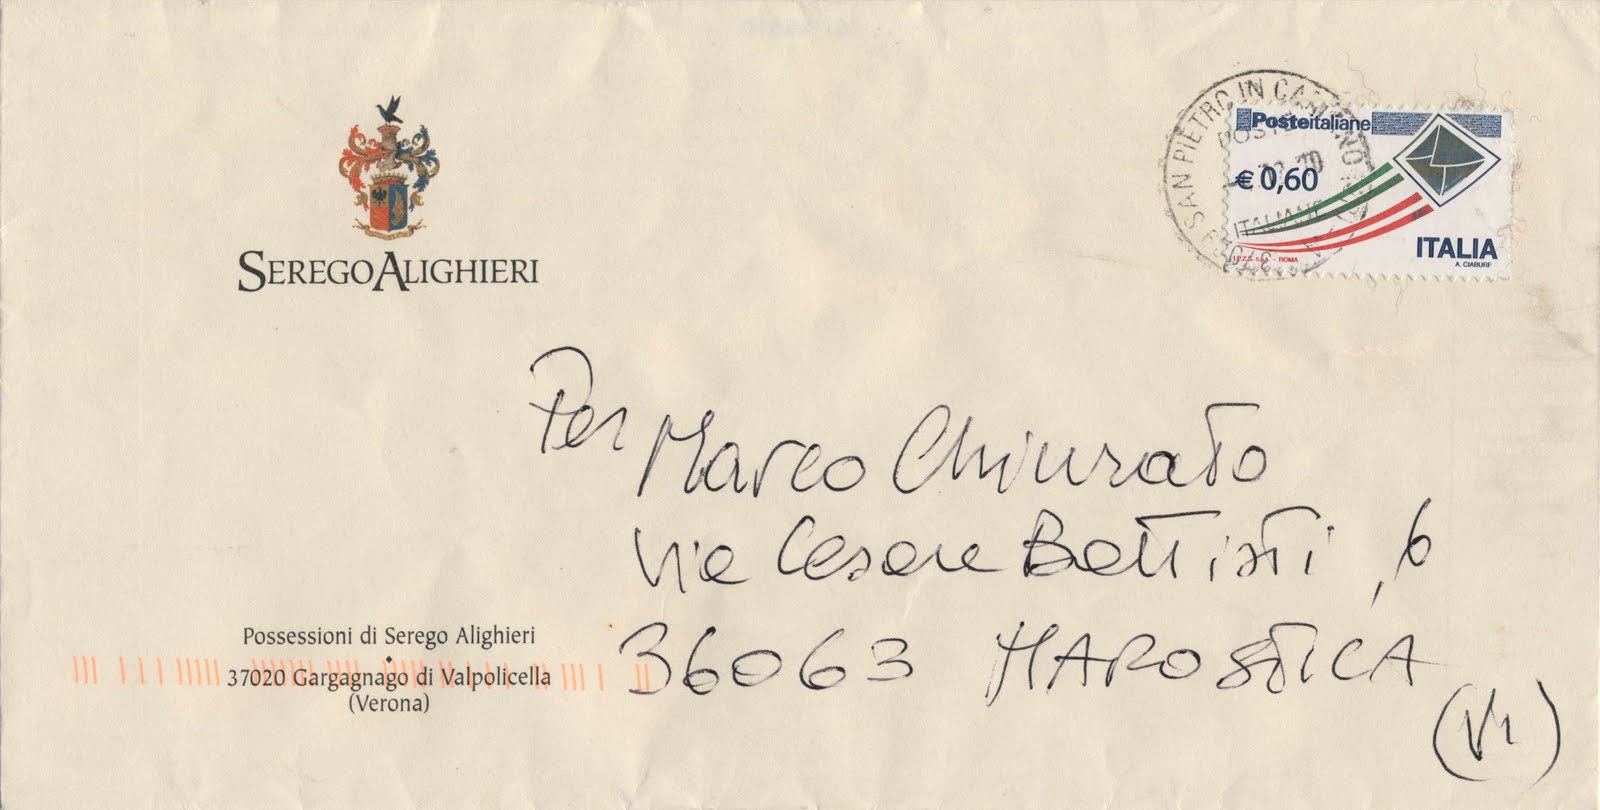 SEREGO ALIGHIERI
SAN PIETRO IN CARIANO
POSTE
ITALIANE
Posteitaliane
€ 0,60
ITALIA
A. CIABURF
I.P.Z.S. S.p.A. - ROMA
Per Marco Chiurato
Via Cesare Battisti, 6
36063 MAROSTICA
(VI)
Possessioni di Serego Alighieri
37020 Gargagnago di Valpolicella
(Verona)